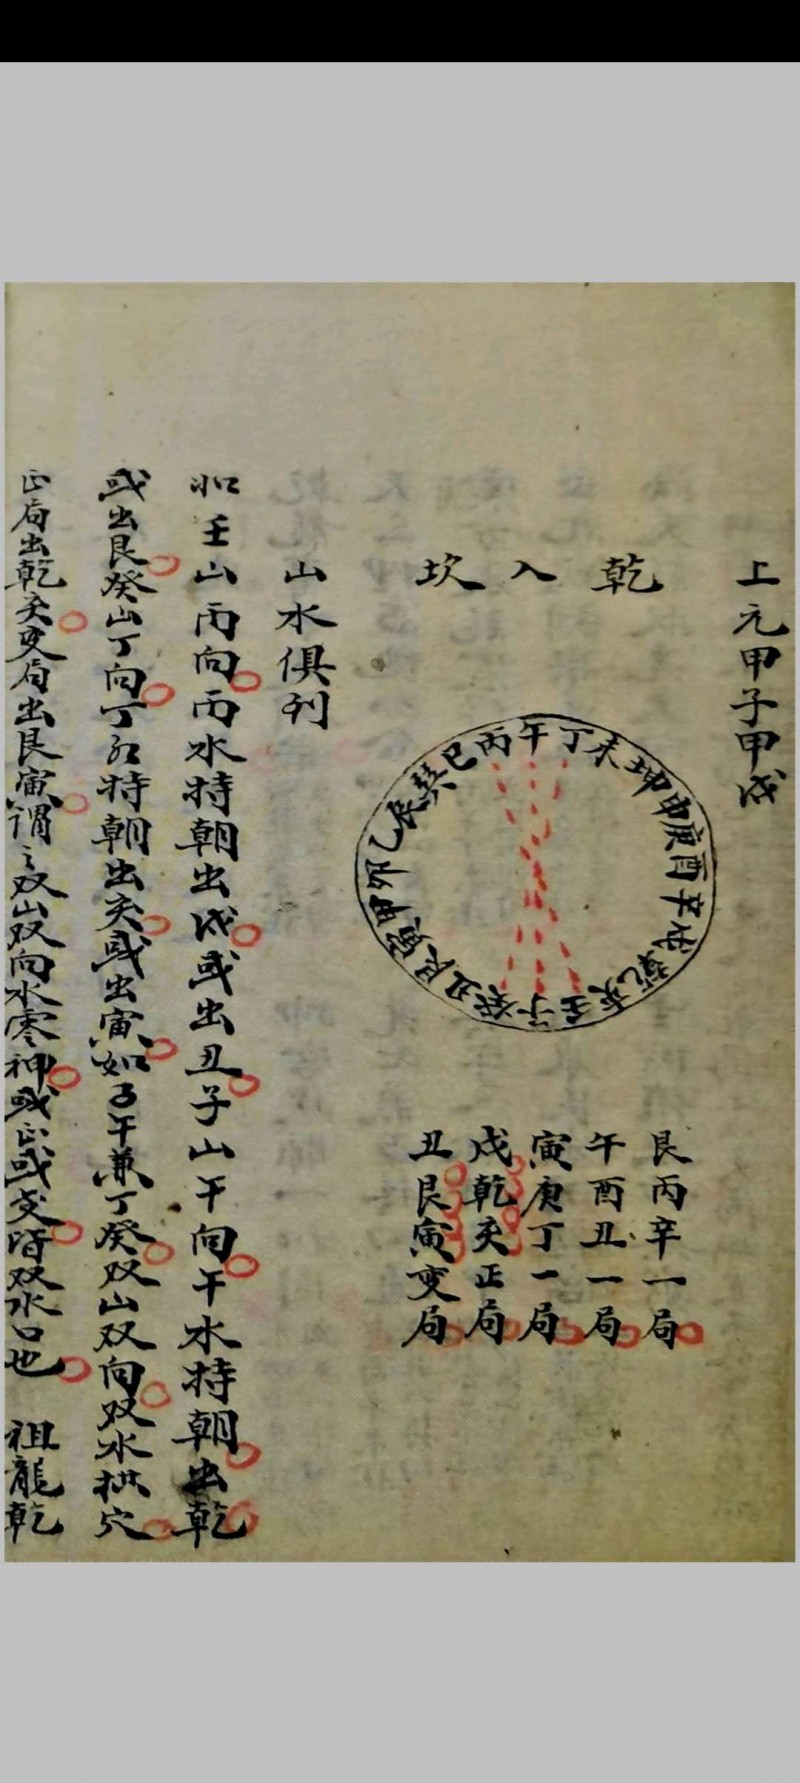 上元甲子甲戌
乾入坎
午丁未坤申庚酉辛戌乾亥壬子癸丑艮寅甲卯乙辰巽巳丙
艮丙辛一局
午酉丑一局
寅庚丁一局
戌乾亥正局
丑艮寅变局
山水俱刋
如壬山丙向丙水特朝出戌或出丑子山午向午水特朝出乾
或出艮癸山丁向丁水特朝出亥或出寅如子午兼丁癸双山双向双水拱穴
正局出乾亥变局出艮寅谓之双山双向水零神或正或变皆双水口也 祖龍乾